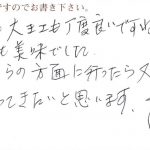 ですのでお書き下さい。
大きエビも丁度良いですね
も美味でした
らの方面に行ったら又
ってきたいと思います、